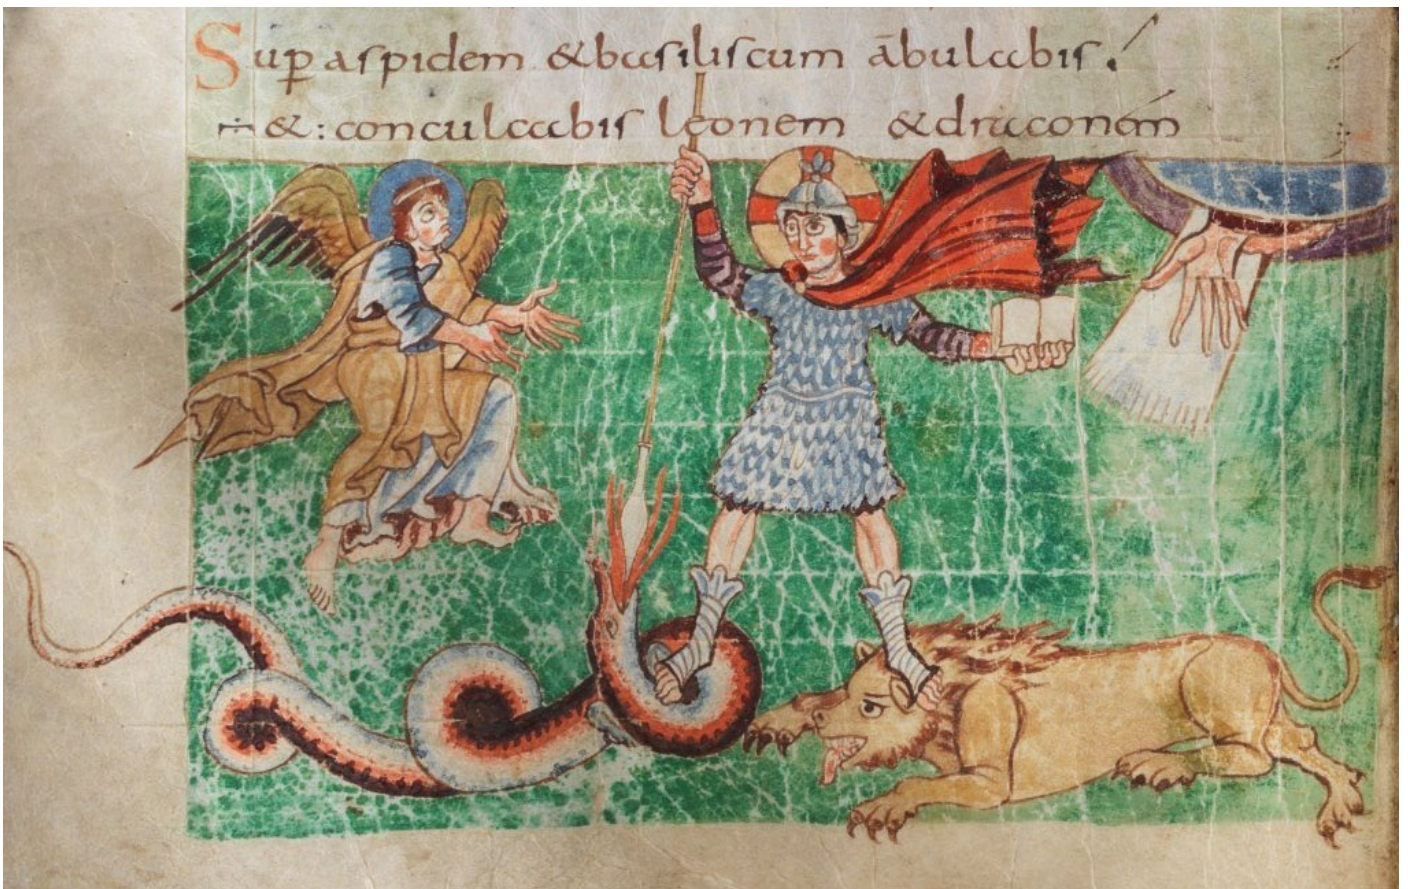 Sup̄ aspidem & basiliscum ābulabis.
÷ & : conculcabis leonem & draconem